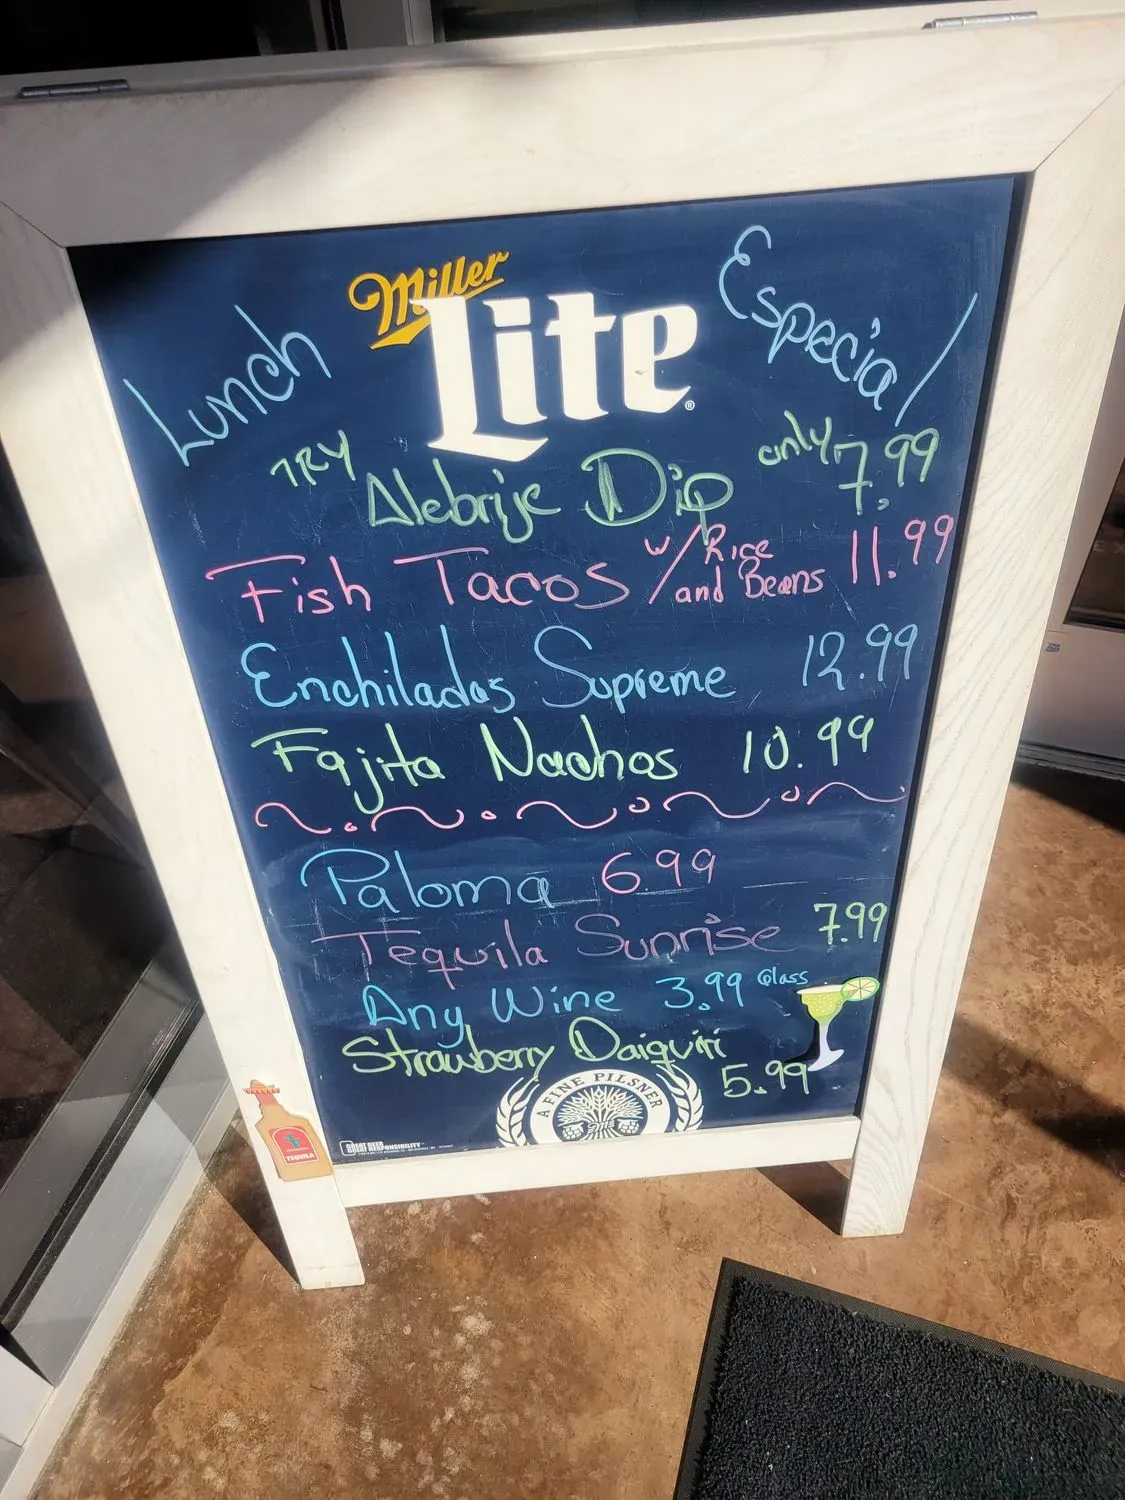 Lunch Especial
Miller
Lite
TRY Alebrije Dip only 7.99
Fish Tacos w/ Rice and Beans 11.99
Enchiladas Supreme 12.99
Fajita Nachos 10.99
Paloma 6.99
Tequila Sunrise 7.99
Any Wine 3.99 Glass
Strawberry Daiquiri
5.99
A FINE PILSNER
GREAT BEER
GREAT RESPONSIBILITY
TEQUILA